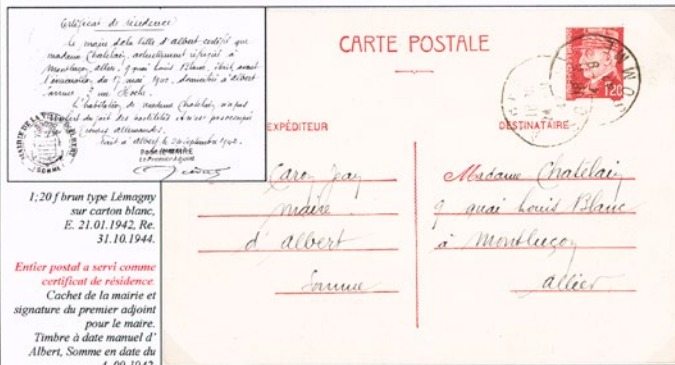 Certificat de résidence
Le maire de la Ville d'Albert certifie que
madame Chatelain, actuellement réfugiée à
Montluçon, Allier, 9 quai Louis Blanc, était, avant
l'évacuation du 17 mai 1940, domiciliée à Albert
Somme, rue Hoche.
L'habitation de madame Chatelain n'a pas
du fait des hostilités
allemandes.
Fait à Albert, le septembre 1942.
POUR LE MAIRE
Le Premier Adjoint
MAIRIE DE LA VILLE D'ALBERT
SOMME
1;20 f brun type Lémagny
sur carton blanc,
E. 21.01.1942, Re.
31.10.1944.
Entier postal a servi comme
certificat de résidence.
Cachet de la mairie et
signature du premier adjoint
pour le maire.
Timbre à date manuel d'
Albert, Somme en date du
4-09-1942
CARTE POSTALE
1,20
OMME
EXPÉDITEUR
Caron Jean
maire
d'Albert
Somme
DESTINATAIRE
Madame Chatelain
9 quai Louis Blanc
à Montluçon
Allier